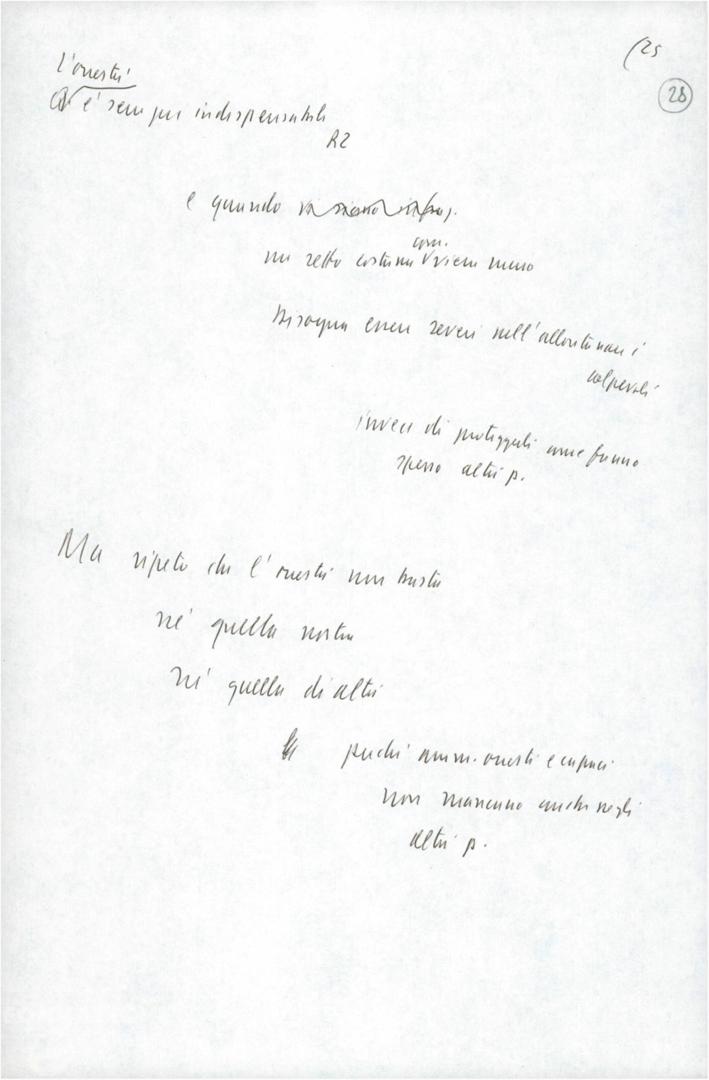 (25
28
l'onestà
è sempre indispensabile
R2
e quando
com.
un retto costume viene meno
bisogna essere severi nell'allontanare i
colpevoli
invece di proteggerli come fanno
spesso altri p.
Ma ripeto che l'onestà non basta
né quella nostra
né quella di altri
perché amm. onesti e capaci
non mancano anche negli
altri p.